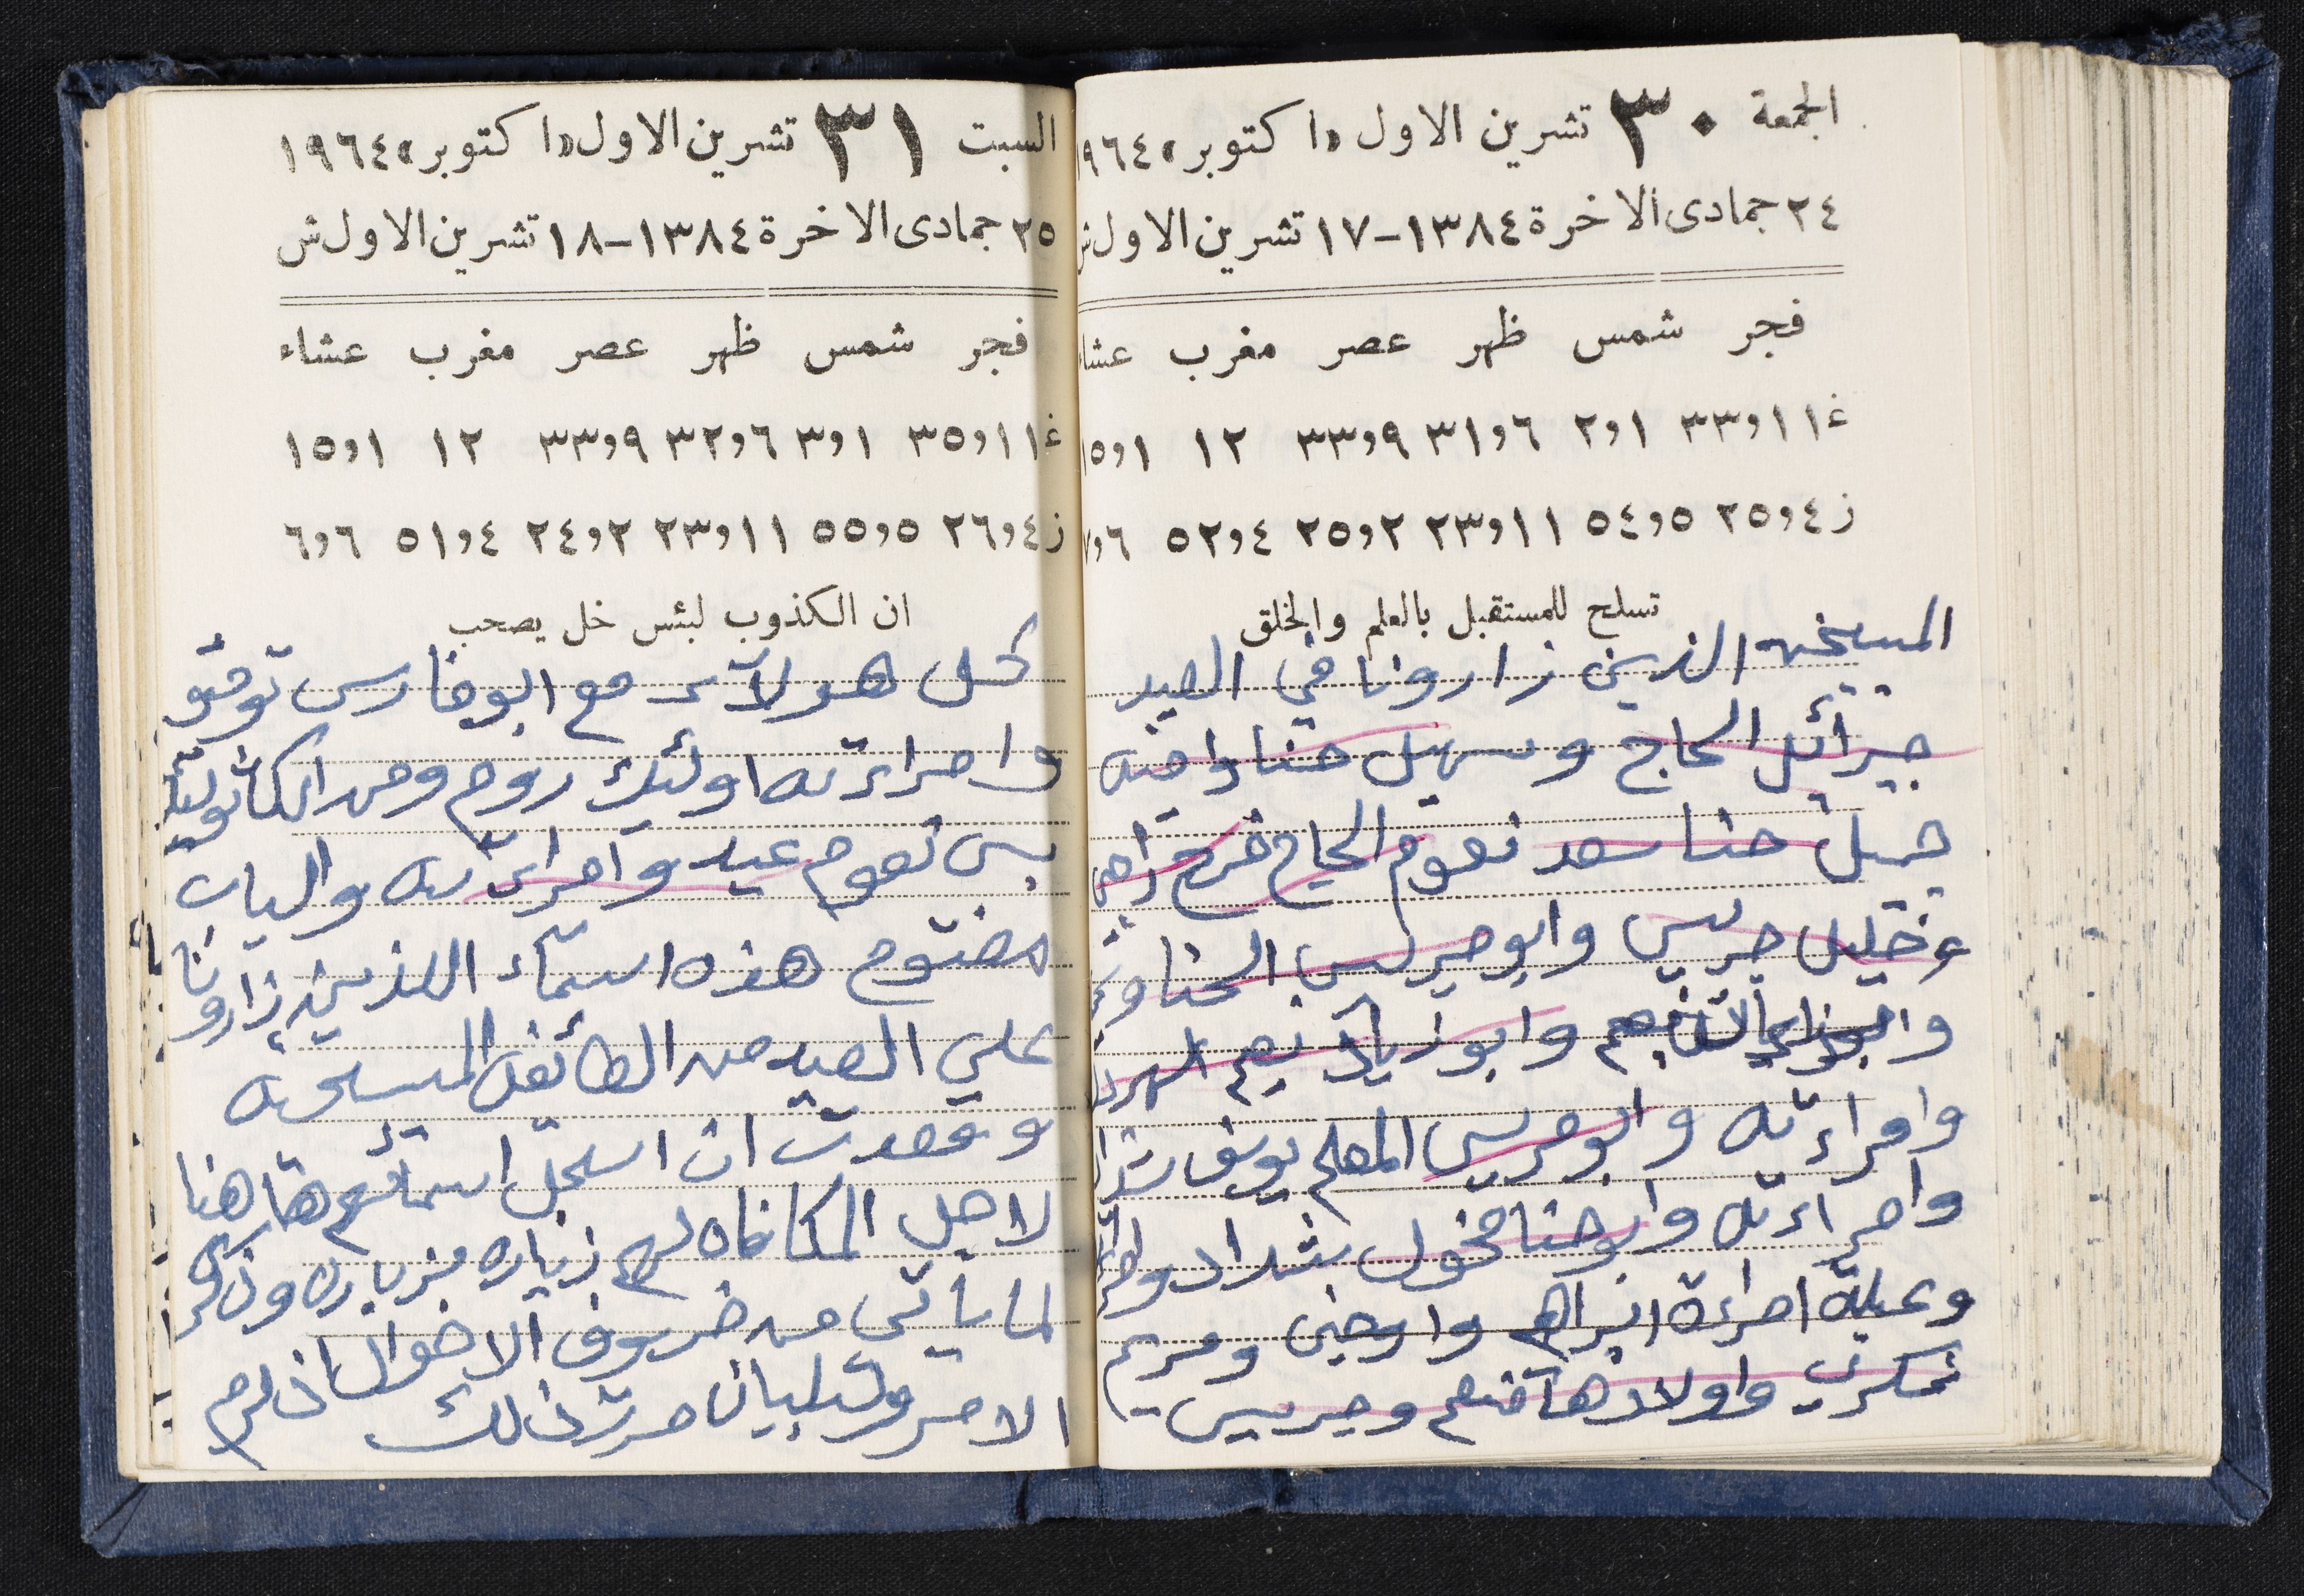 الجمعة ٣٠ تشرين الاول «اكتوبر» ١٩٦٤
٢٤ جمادى الاخرة ١٣٨٤-١٧ تشرين الاول ش
فجر شمس ظهر عصر مغرب عشاء
غ ١١و٣٣ ١و٢ ٦و٣١ ٩و٣٣ ١٢ ١و١٥
ز ٤و٢٥ ٥و٥٤ ١١و٢٣ ٢و٢٥ ٤و٥٢ ٦و٧
تسلح للمستقبل بالعلم والخلق
الذين زارونا في العيد
جبرائل الحاج وسهيل حنا
جميل حنا سعد نعوم الحاج فرح
وخليل جريس وابو جريس الحناوي
وابو زياد نعيم
وامراءته وابو جريس المعلم يوسف شداد
وامراءته وابو حنا مخول شداد
وعيلة امراءة ابراهيم ومريم
واولادها منعم وجريس
السبت ٣١ تشرين الاول «اكتوبر» ١٩٦٤
٢٥ جمادى الاخرة ١٣٨٤-١٨ تشرين الاول ش
فجر شمس ظهر عصر مغرب عشاء
غ ١١و٣٥ ١و٣ ٦و٣٢ ٩و٣٣ ١٢ ١و١٥
ز ٤و٢٦ ٥و٥٥ ١١و٢٣ ٢و٢٤ ٤و٥١ ٦و٦
ان الكذوب لبئس خل يصحب
كل هولآء مع ابو فارس توفيق
وامراءته اوليك روم ومن الكاثوليك
بس نعوم عيد وامراءته والباب
مفتوح هذه اسمآء الذين زارونا
علي العيد من الطائفة المسيحيه
وقصدت ان اسجل اسمائهم هاهنا
لاجل المكافاه لهم زياره بزياره
لما ياتي من ضروف الاحوال ان لزم
الامر وللبيان حررت ذالك